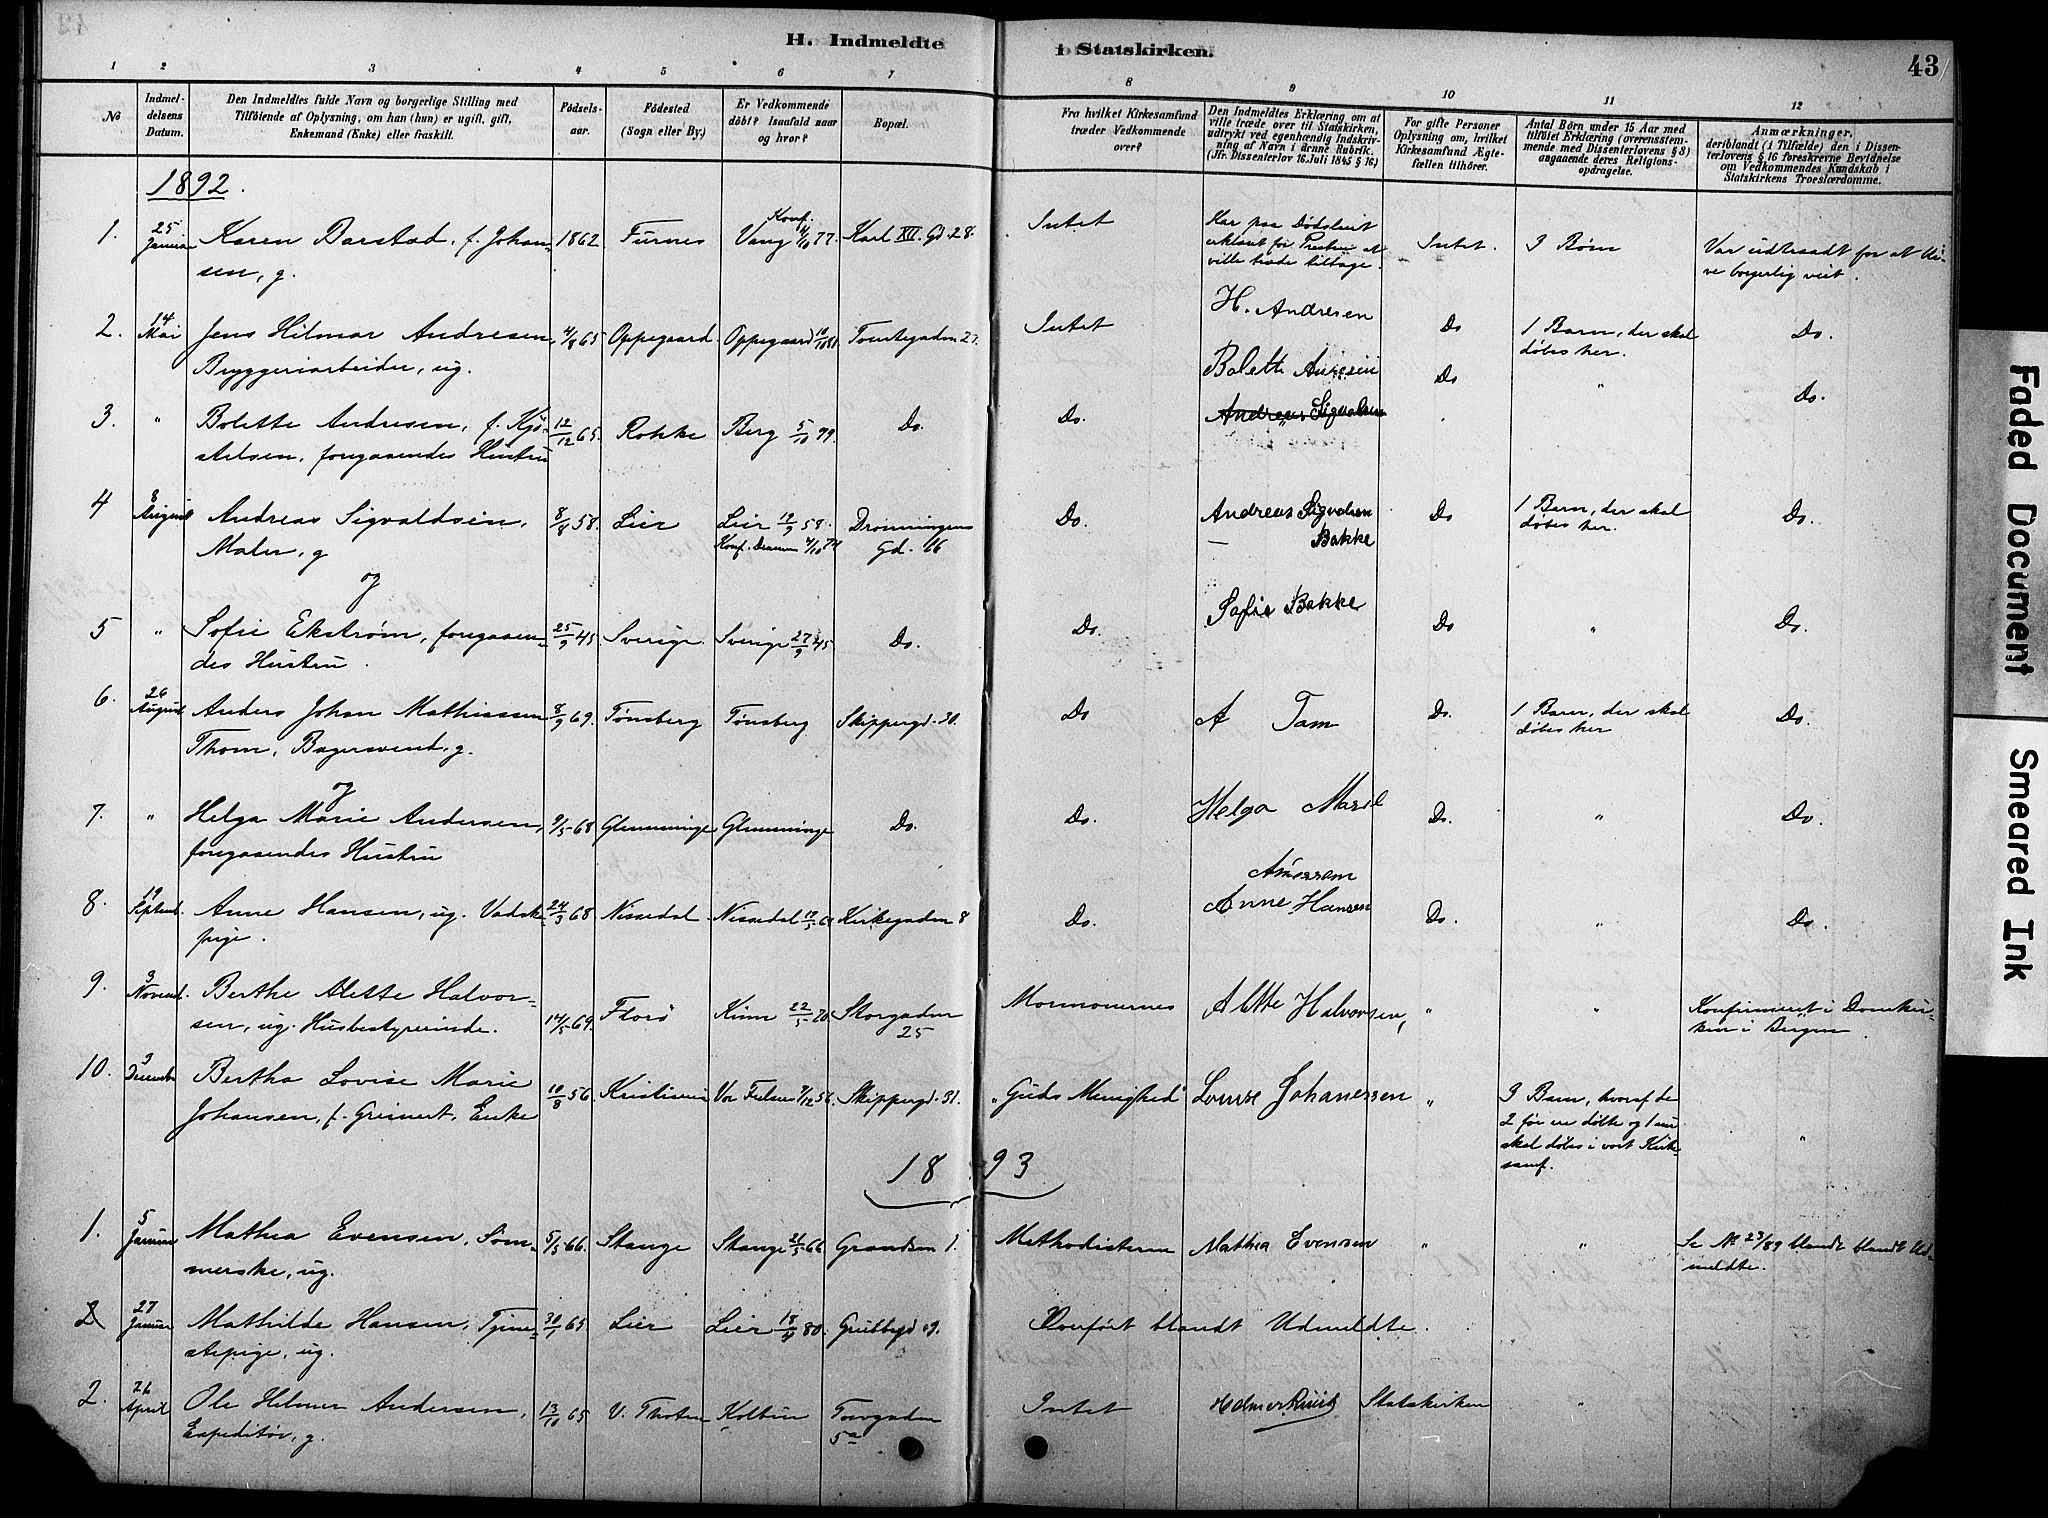 H. Indmeldte i Statskirken.
43
1 2 3 4 5 6 7 8 9 10 11 12
No
Indmel-
delsens
Datum.
Den Indmeldtes fulde Navn og borgerlige Stilling med
Tilföiende af Oplysning, om han (hun) er ugift, gift,
Enkemand (Enke) eller fraskilt.
Födsels-
aar.
Födested
(Sogn eller By.)
Er Vedkommende
döbt? Isaafald naar
og hvor?
Bopæl.
Fra hvilket Kirkesamfund
træder Vedkommende
over?
Den Indmeldtes Erklæring om at
ville træde over til Statskirken,
udtrykt ved egenhændig Indskriv-
ning af Navn i denne Rubrik.
(Jfr. Dissenterlov 16 Juli 1845 § 16)
For gifte Personer
Oplysning om, hvilket
Kirkesamfund Ægte-
fællen tilhörer.
Antal Börn under 15 Aar med
tilföiet Erklæring (overensstem-
mende med Dissenterlovens § 8)
angaaende deres Religions-
opdragelse.
Anmærkninger,
deriblandt (i Tilfælde) den i Dissen-
terlovens § 16 foreskrevne Bevidnelse
om Vedkommendes Kundskab i
Statskirkens Troeslærdomme.
1892.
1. 25 Januar Karen Barstad, f. Johan- 1862 Furnes Konf. Vang 77. Karl XII. Gd. 28. Intet Har paa Dödsleiet Intet. 3 Børn Var udtraadt for at bli-
sen, g. erklæret for Presten at ville træde tilbage. ve borgerlig viet.
2. 14 Mai Jens Hilmar Andresen, 4/8 65 Oppegaard. Oppegaard Tomtegaden 27. Intet H. Andresen Do 1 Barn, der skal Do.
Bryggeriarbeider, ug. døbes her.
3. " Bolette Andresen, f. Kjø- 12/12 65. Rokke Berg 5/10 79. Do. Do. Bolette Anresen Do " Do.
stelsen, foregaaendes Hustru Andreas Sigvalsen
4 8 August Andreas Sigvaldsen, 8/8 58. Lier Lier 19/9 58. Dronningens Do. Andreas Sigvalsen Do 1 Barn, der skal Do.
Maler, g Konf. Drammen 4/10 74 Gd. 66 — Bakke døbes her.
og
5 " Sofie Ekstrøm, foregaaen- 25/9 45. Sverige. Sverige 27/9 45 Do. Do. Sofie Bakke Do " Do.
des Hustru.
6. 26 August Anders Johan Mathiassen 8/9 69. Tønsberg Tønsberg Skippergd. 30. Do A Tam Do. 1 Barn, der skal Do.
Thom, Bagersvend, g. døbes her
og
7. " Helga Marie Andersen, 9/5 68 Glemminge Glemminge Do. Do. Helga Marie Do. " Do.
foregaaendes Hustru
8. 19 Septemb. Anne Hansen, ug. Vadske- 24/3 68 Nissedal Nissedal Kirkegaden 8 Do. Anne Hansen Do. " Do.
pige.
9. 3 Novemb. Berthe Alette Halvor- 14/5 69. Florø Kinn 22/5 70. Storgaden Mormonernes Alette Halvorsen, " " Konfirmeret i Domkir-
sen, ug. Husbestyrerinde. 25 ken i Bergen.
10. 3 Decembr Bertha Lovise Marie 10/8 56. Kristiania Vor Frelsers 7/12 56. Skippergd. 31. „Guds Menighed" Louise Johanessen " 3 Barn, hvoraf de
Johansen, f. Greinert, Enke 2 før ere døbte og 1 nu
skal døbes i vort Kirke-
samf. "
1893
1. 5 Januar Mathea Evensen, Søm- 5/5 66. Stange Stange 21/5 66 Grændsen 1. Methodisterne Mathea Evensen " " Se No 23/89 blandt blandt Ud-
merske, ug. meldte.
2 27 Januar Mathilde Hansen, Tjene- 30/1 65 Lier Lier 80. Overført blandt Udmeldte.
stepige, ug.
2. 26 April Ole Helmer Andersen, 13/10 65 V. Thoten Kolbun Torvgaden Intet Statskirken "
Expeditør, g. 5a
Faded Document
Smeared Ink